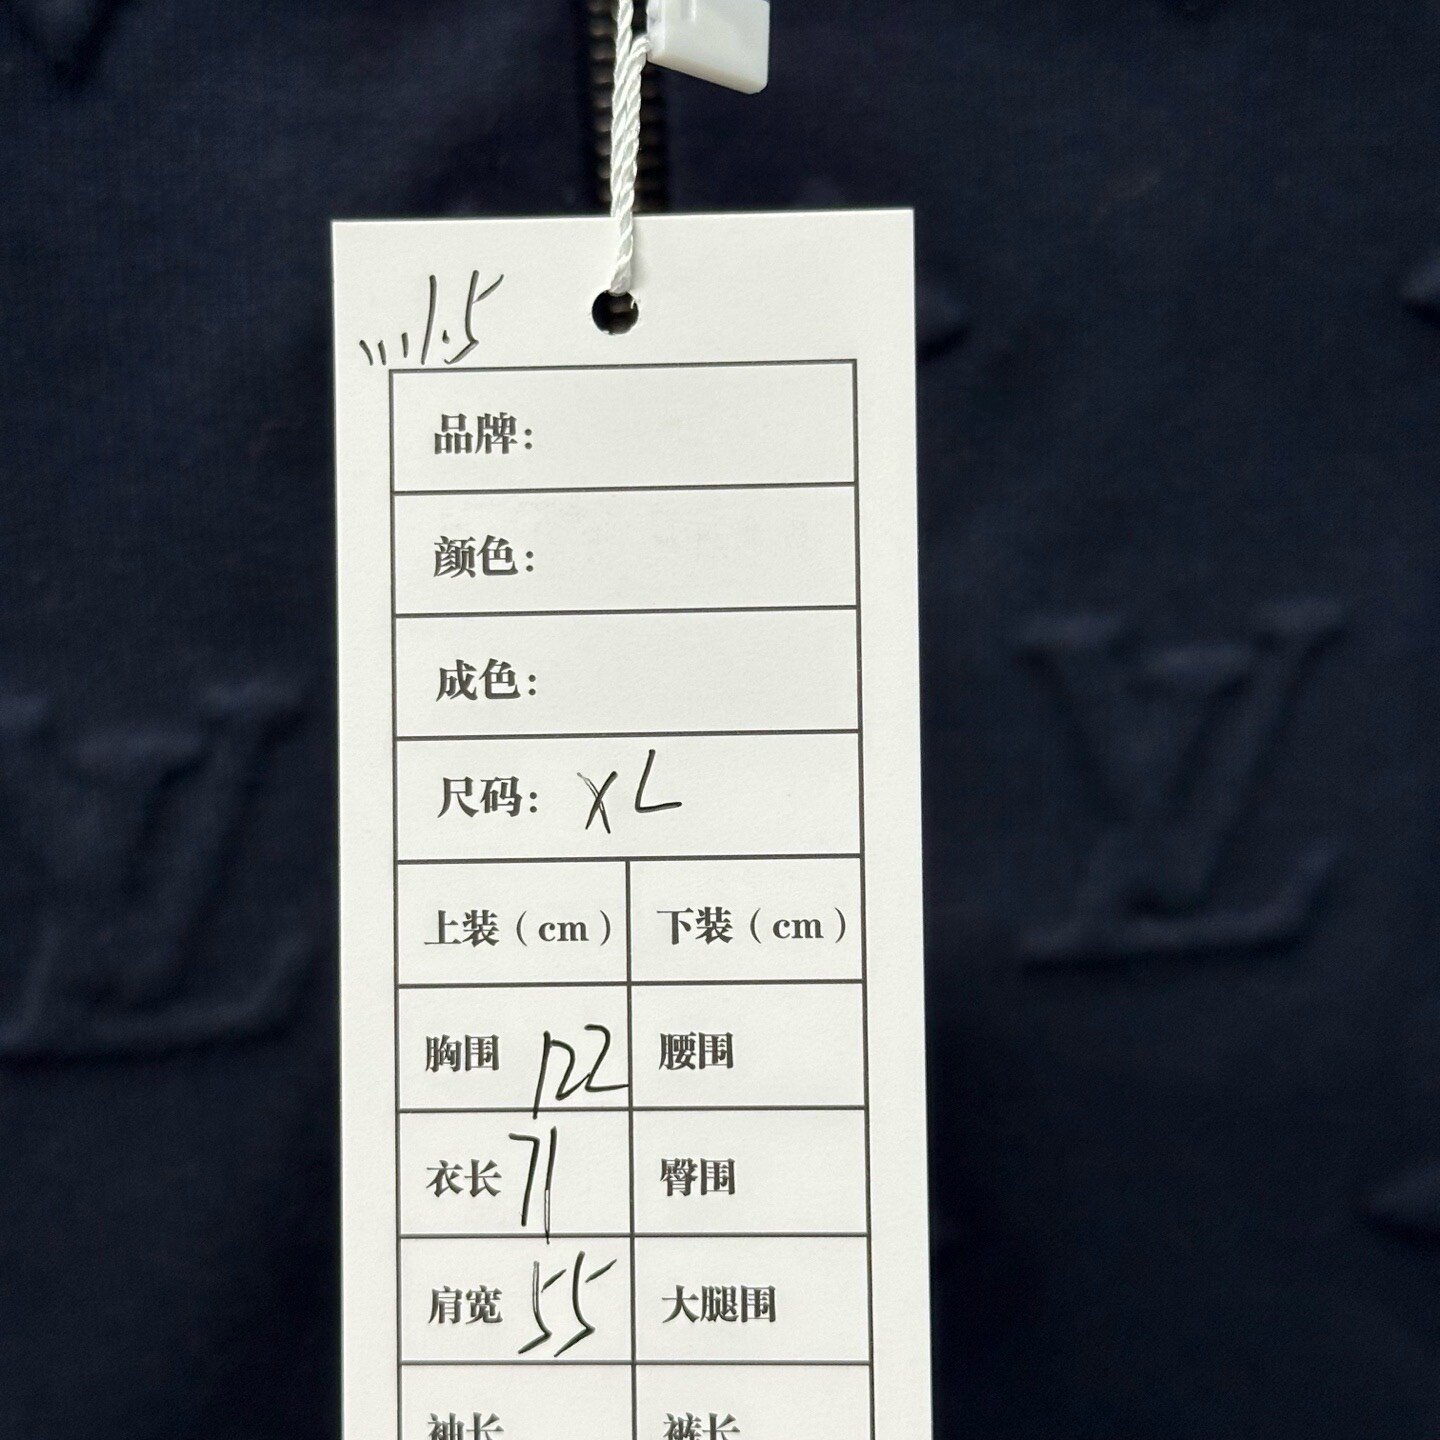 1.5
品牌:
颜色:
成色:
尺码: XL
上装（cm） 下装（cm）
胸围 122 腰围
衣长 71 臀围
肩宽 55 大腿围
袖长 裤长
LV LV